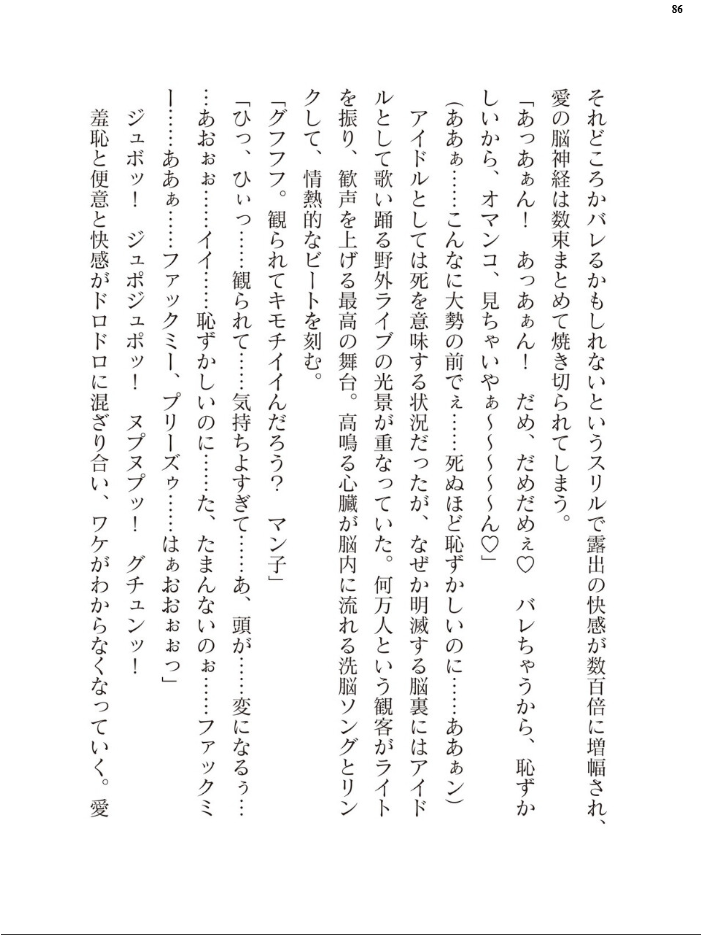 86
それどころかバレるかもしれないというスリルで露出の快感が数百倍に増幅され、
愛の脳神経は数束まとめて焼き切られてしまう。
「あっあぁん！　あっあぁん！　だめ、だめだめぇ♡　バレちゃうから、恥ずか
しいから、オマンコ、見ちゃいやぁ〜〜〜〜〜ん♡」
（ああぁ……こんなに大勢の前でぇ……死ぬほど恥ずかしいのに……ああぁン）
アイドルとしては死を意味する状況だったが、なぜか明滅する脳裏にはアイド
ルとして歌い踊る野外ライブの光景が重なっていた。何万人という観客がライト
を振り、歓声を上げる最高の舞台。高鳴る心臓が脳内に流れる洗脳ソングとリン
クして、情熱的なビートを刻む。
「グフフフ。観られてキモチイイんだろう？　マン子」
「ひっ、ひぃっ……観られて……気持ちよすぎて……あ、頭が……変になるぅ…
…あおぉぉ……イイ……恥ずかしいのに……た、たまんないのぉ……ファックミ
ー……ああぁ……ファックミー、プリーズゥ……はぁおおぉぉっ」
ジュボッ！　ジュポジュポッ！　ヌプヌプッ！　グチュンッ！
羞恥と便意と快感がドロドロに混ざり合い、ワケがわからなくなっていく。愛